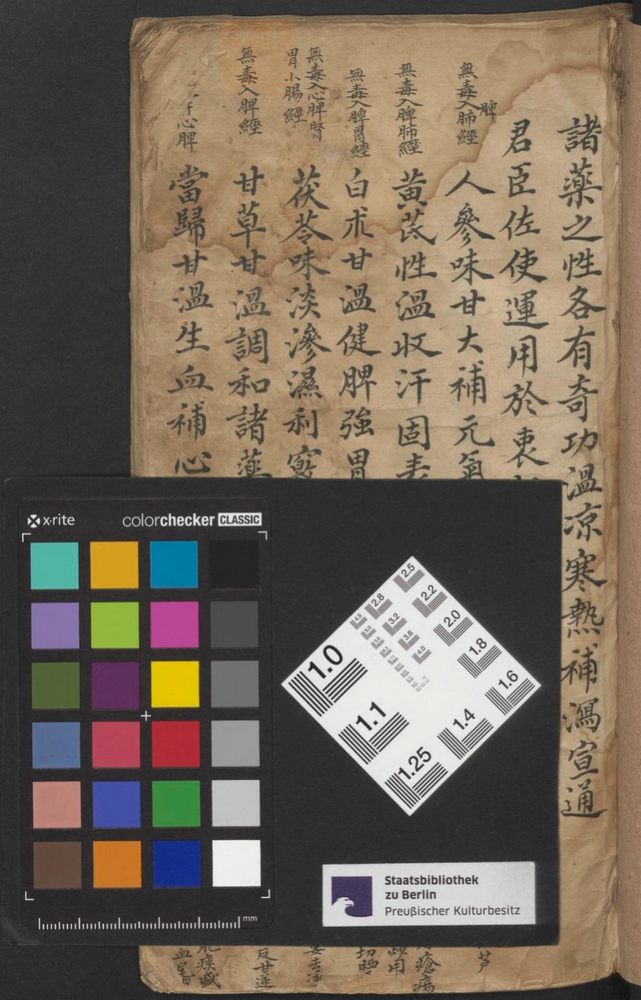 諸藥之性各有奇功溫凉寒熱補瀉宣通
君臣佐使運用於衷
無毒入脾肺經
人參味甘大補元氣
無毒入脾肺經
黄芪性溫収汗固表
無毒入脾胃經
白朮甘溫健脾強胃
無毒入心脾腎
胃小腸經
茯苓味淡滲濕利竅
無毒入脾經
甘草甘溫調和諸藥
肝心脾
當歸甘溫生血補心
反甘遂
x·rite
colorchecker CLASSIC
mm
2.5
2.8
2.2
3.2
2.0
3.6
4.0
1.8
1.6
1.0
1.1
1.4
1.25
Staatsbibliothek
zu Berlin
Preußischer Kulturbesitz